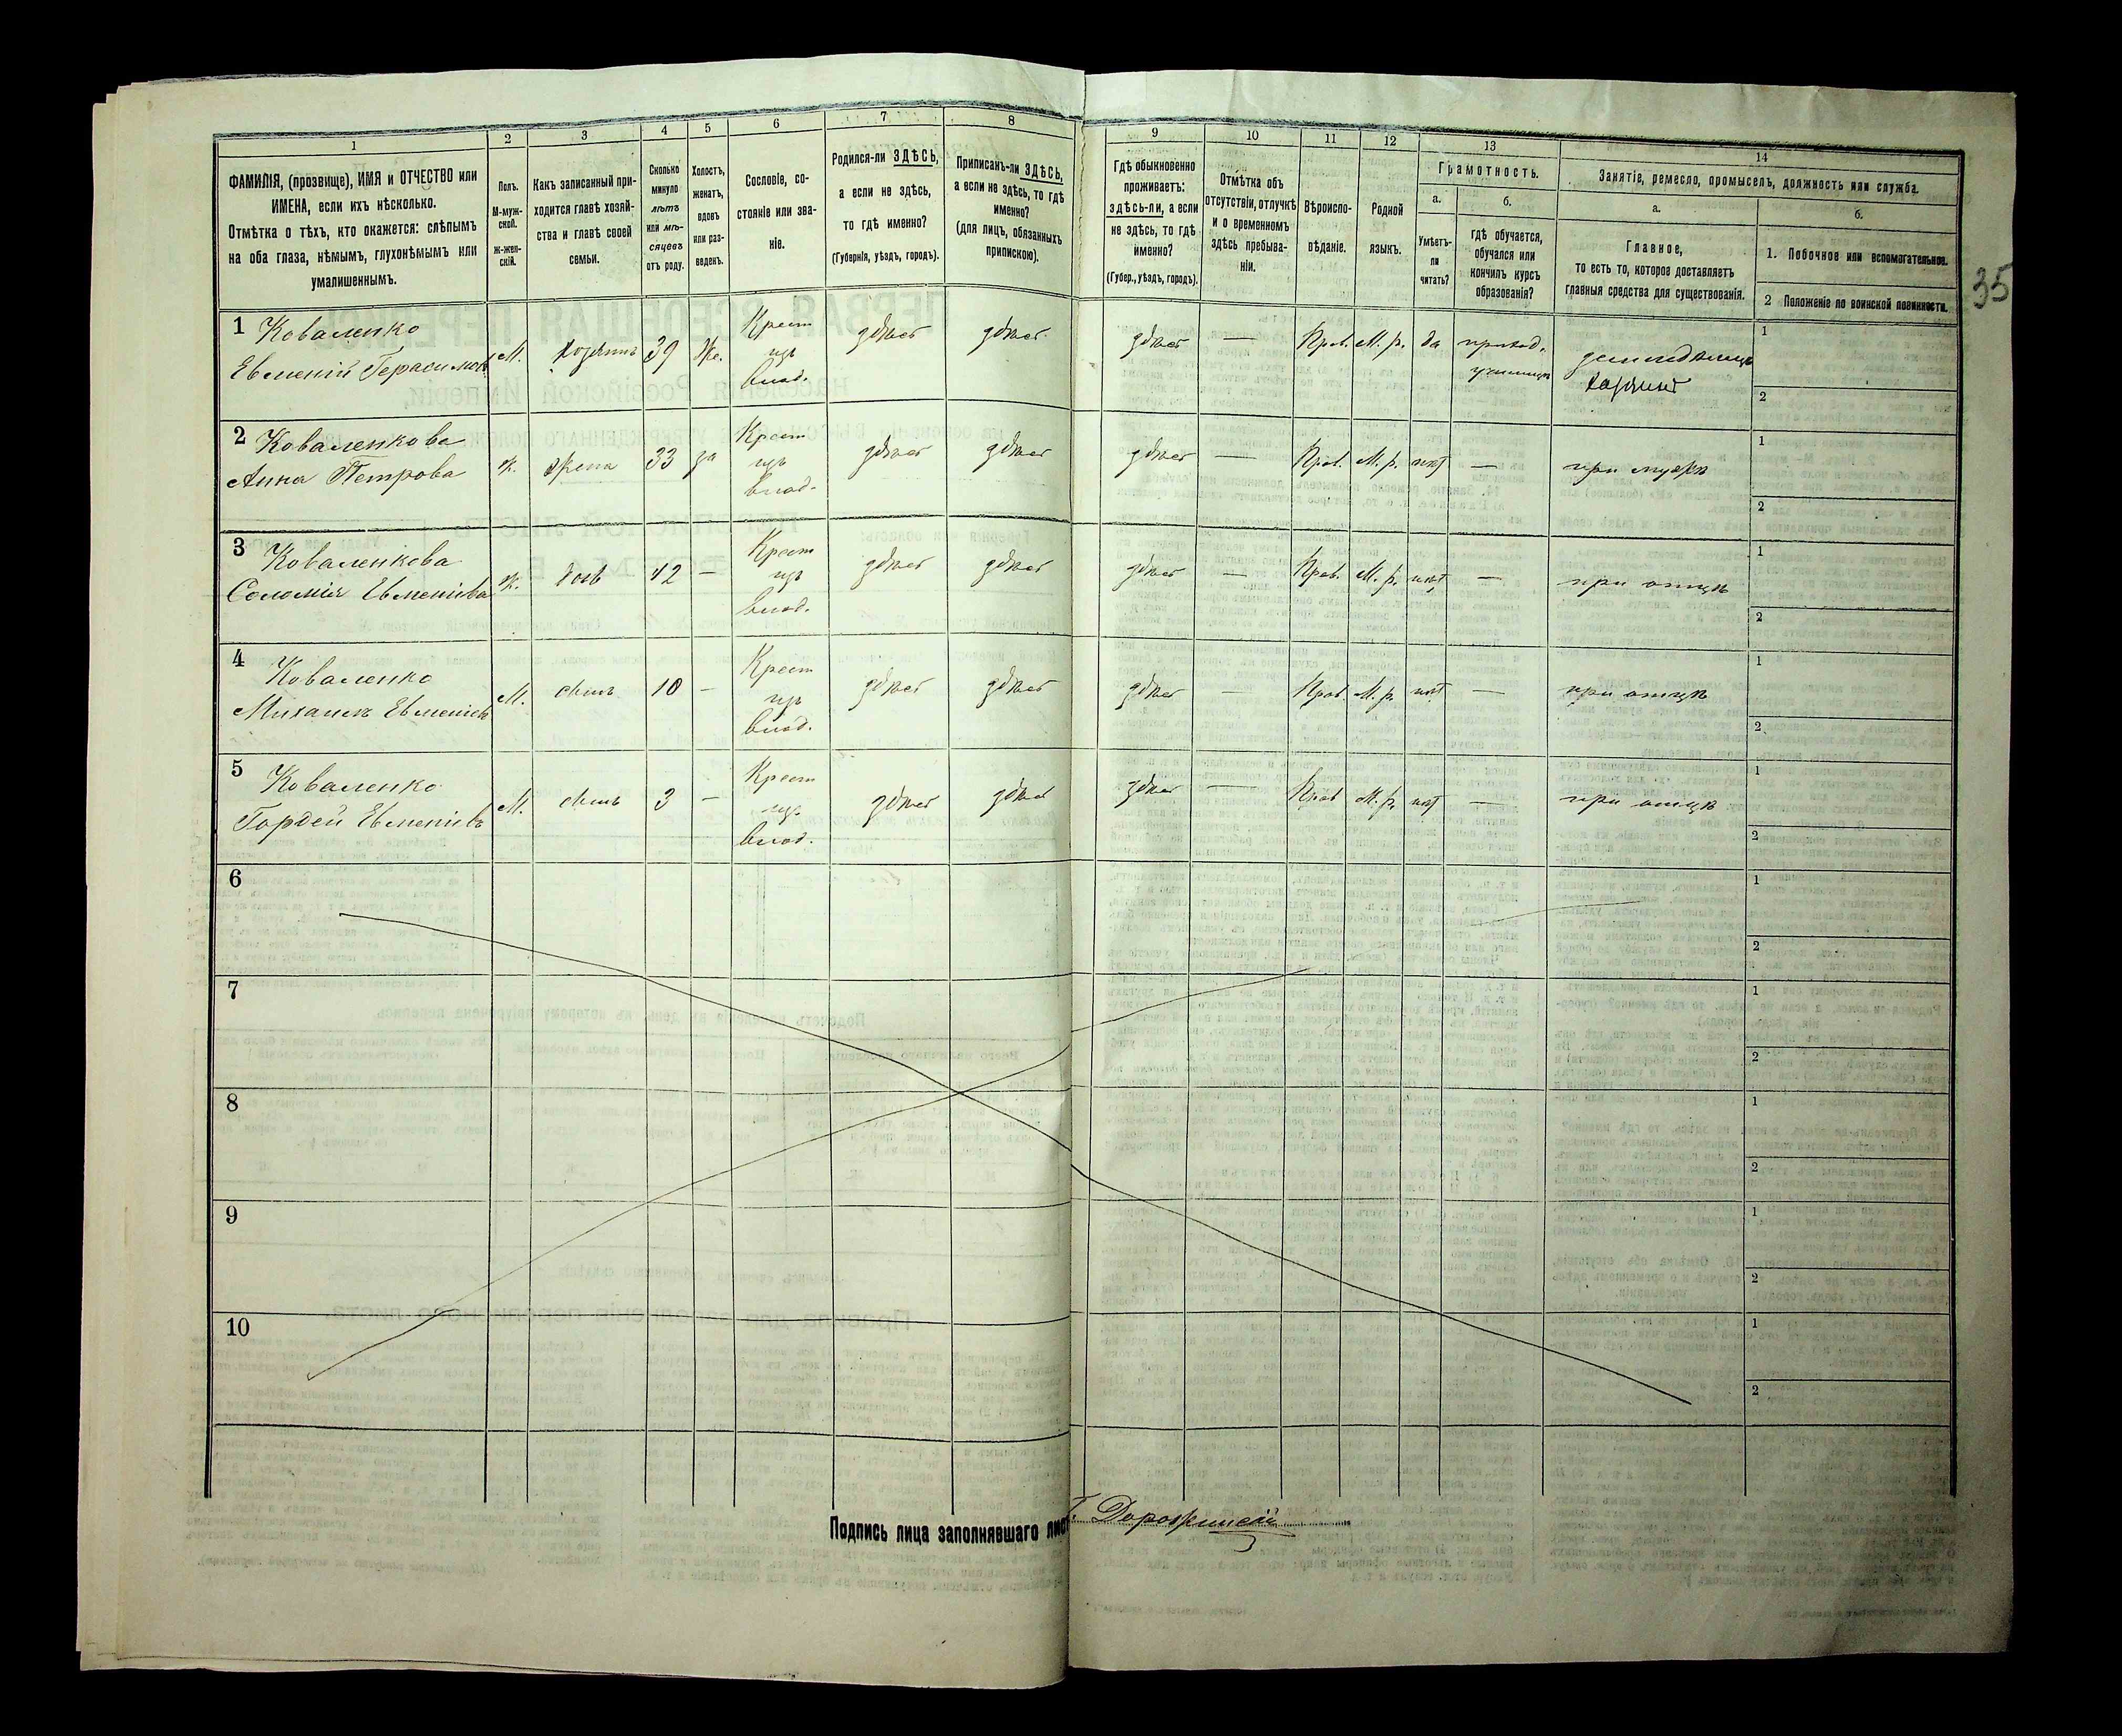 1
2
3
4
5
6
7
8
9
10
11
12
13
14
ФАМИЛІЯ, (прозвище), ИМЯ и ОТЧЕСТВО или
ИМЕНА, если ихъ нѣсколько.
Отмѣтка о тѣхъ, кто окажется: слѣпымъ
на оба глаза, нѣмымъ, глухонѣмымъ или
умалишеннымъ.
Полъ.
М-муж-
ской.
Ж-жен-
скій.
Какъ записанный при-
ходится главѣ хозяй-
ства и главѣ своей
семьи.
Сколько
минуло
лѣтъ
или мѣ-
сяцевъ
отъ роду.
Холостъ,
женатъ,
вдовъ
или раз-
веденъ.
Сословіе, со-
стояніе или зва-
ніе.
Родился-ли ЗДѢСЬ,
а если не здѣсь,
то гдѣ именно?
(Губернія, уѣздъ, городъ).
Приписанъ-ли ЗДѢСЬ,
а если не здѣсь, то гдѣ
именно?
(для лицъ, обязанныхъ
припискою).
Гдѣ обыкновенно
проживаетъ:
здѣсь-ли, а если
не здѣсь, то гдѣ
именно?
(Губер., уѣздъ, городъ).
Отмѣтка объ
отсутствіи, отлучкѣ
и о временномъ
здѣсь пребыва-
ніи.
Вѣроиспо-
вѣданіе.
Родной
языкъ.
Грамотность.
а.
Умѣетъ-
ли
читать?
б.
гдѣ обучается,
обучался или
кончилъ курсъ
образованія?
Занятіе, ремесло, промыселъ, должность или служба.
а.
Главное,
то есть то, которое доставляетъ
главныя средства для существованія.
б.
1. Побочное или вспомогательное.
2 Положеніе по воинской повинности.
35
1 Коваленко
Евменій Герасимов
М. хозяинъ 39 Же. Крест из влад. здѣсь здѣсь здѣсь — Прав. М. р. да приход. училищѣ земледѣлецъ хозяинъ
1
2
2 Коваленкова
Анна Петрова
ж. жена 33 за Крест изъ влад. здѣсь здѣсь здѣсь — Прав. М. р. нѣт — при мужѣ
1
2
3 Коваленкова
Соломія Евменіева
ж. дочь 12 — Крест изъ влад. здѣсь здѣсь здѣсь — Прав. М. р. нѣт — при отцѣ
1
2
4 Коваленко
Михаилъ Евменіевъ
М. сынъ 10 — Крест из влад. здѣсь здѣсь здѣсь — Прав. М. р. нѣт — при отцѣ
1
2
5 Коваленко
Гордей Евменіевъ
М. сынъ 3 — Крест из влад. здѣсь здѣсь здѣсь — Прав М. р. нѣт — при отцѣ
1
2
6
1
2
7
1
2
8
1
2
9
1
2
10
1
2
Подпись лица заполнявшаго лист